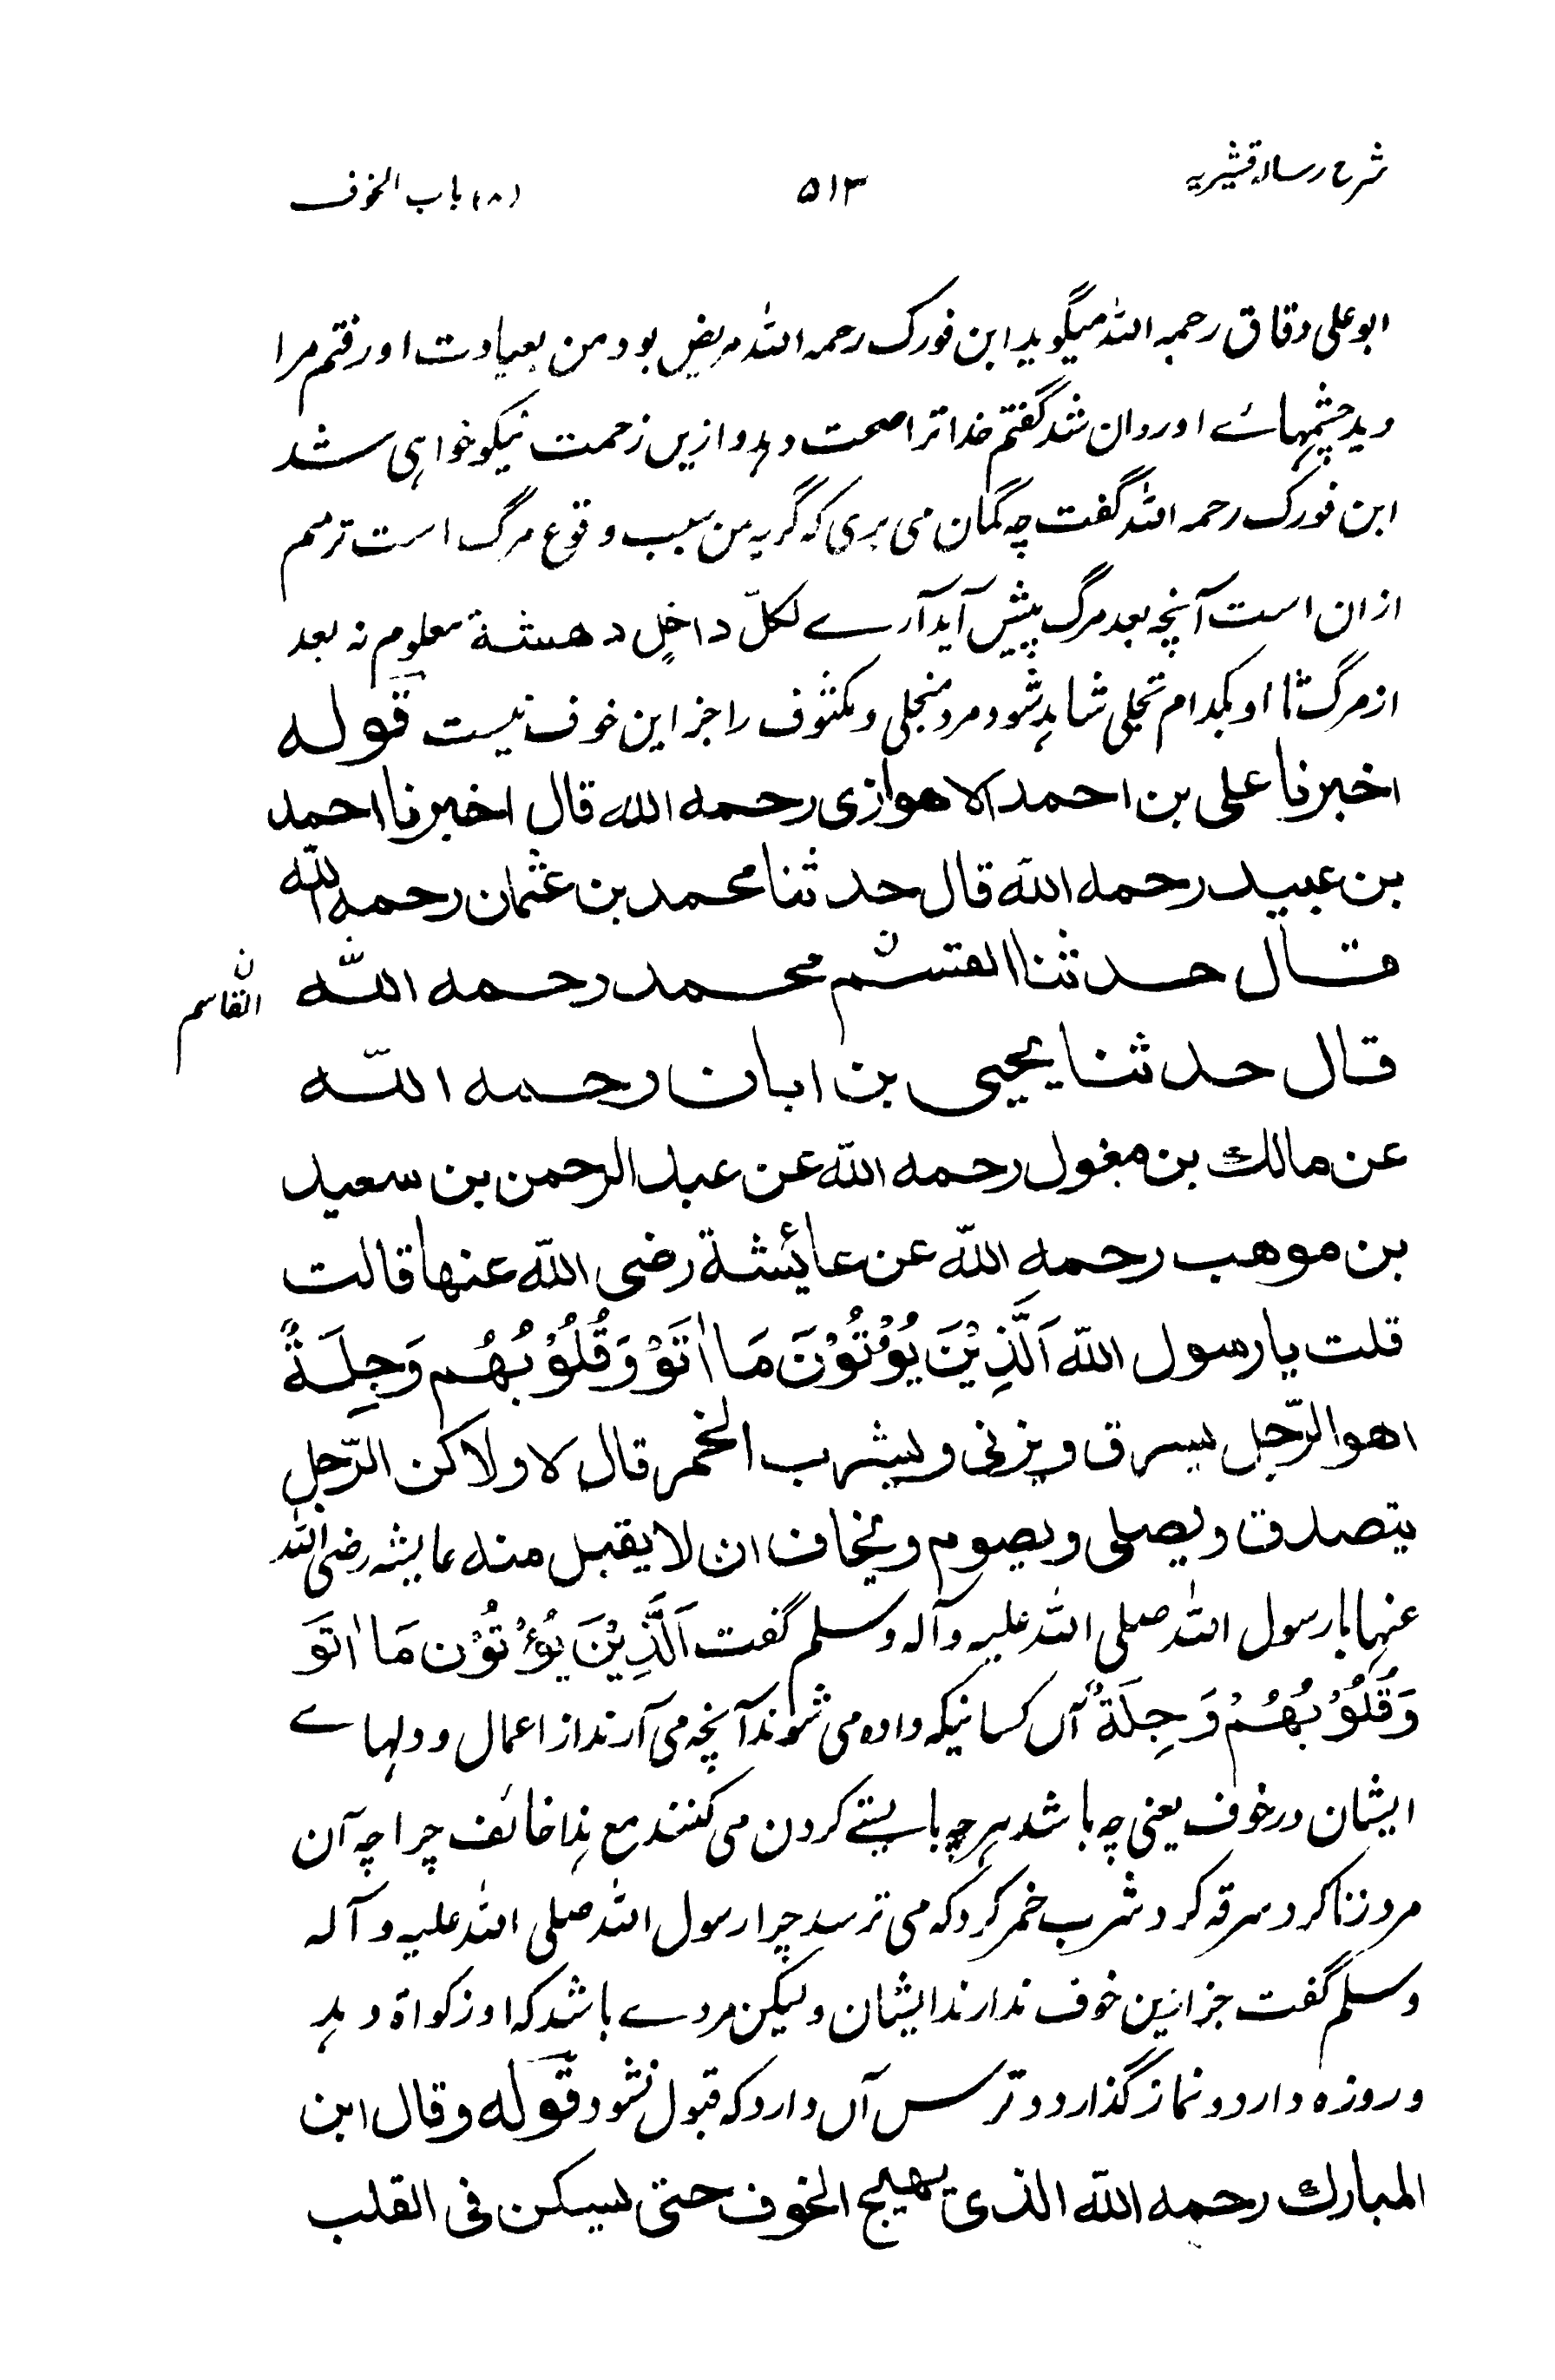 شرح رسالہ قشیریہ
۵۱۳
(۸) باب الخوف
ابو علی دقاق رحمہ اللہ میگوید ابن فورک رحمہ اللہ مریض بود من بعیادت او رفتم مرا
دید چشمہائے او روان شد گفتم خدا ترا صحت دہد و ازیں زحمت نیکو خواہی شد
ابن فورک رحمہ اللہ گفت چہ گمان می بری کہ گریہ من بسبب وقوع مرگ است ترسم
ازان است آنچہ بعد مرگ پیش آید آرے لکلّ داخلٍ دهشة معلوم نہ بعد
از مرگ تا او بکدام تجلی شاہد شود مرد منجلی و مکشوف را جز این خوف نیست قوله
اخبرنا علی بن احمد الاهوازی رحمه الله قال اخبرنا احمد
بن عبید رحمه الله قال حدثنا محمد بن عثمان رحمه الله
قال حدثنا القسم محمد رحمه الله
ن القاسم
قال حدثنا یحیی بن ابان رحمه الله
عن مالك بن مغول رحمه الله عن عبد الرحمن بن سعید
بن موهب رحمه الله عن عائشة رضی الله عنها قالت
قلت یا رسول الله اَلَّذِیْنَ یُؤْتُوْنَ مَا اٰتَوْ وَقُلُوْبُهُم وَجِلَةٌ
اهو الرّجل یسرق ویزنی ویشرب الخمر قال لا ولاکن الرّجل
یتصدق ویصلی ویصوم ویخاف ان لا یقبل منه عایشہ رضی اللہ
عنہا با رسول اللہ صلی اللہ علیہ وآلہ وسلم گفت اَلَّذِیْنَ یُؤْتُوْن مَا اٰتَوَ
وَقُلُوْبُهُمْ وَجِلَةٌ آں کسانیکہ دادہ می شوند آنچہ می آرند از اعمال و دلہاے
ایشان در خوف یعنی چہ باشد ہرچہ بایستے کردن می کنند مع ہذا خائف چرا چہ آن
مرد زنا کرد سرقہ کرد شرب خمر کرد کہ می ترسد چرا رسول اللہ صلی اللہ علیہ و آلہ
وسلم گفت جز ازین خوف ندارند ایشان ولیکن مردے باشد کہ او زکواة دہد
و روزہ دارد و نماز گذارد و ترس آں دارد کہ قبول نشود قوله وقال ابن
المبارك رحمه الله الذی یهیج الخوف حتی یسکن فی القلب